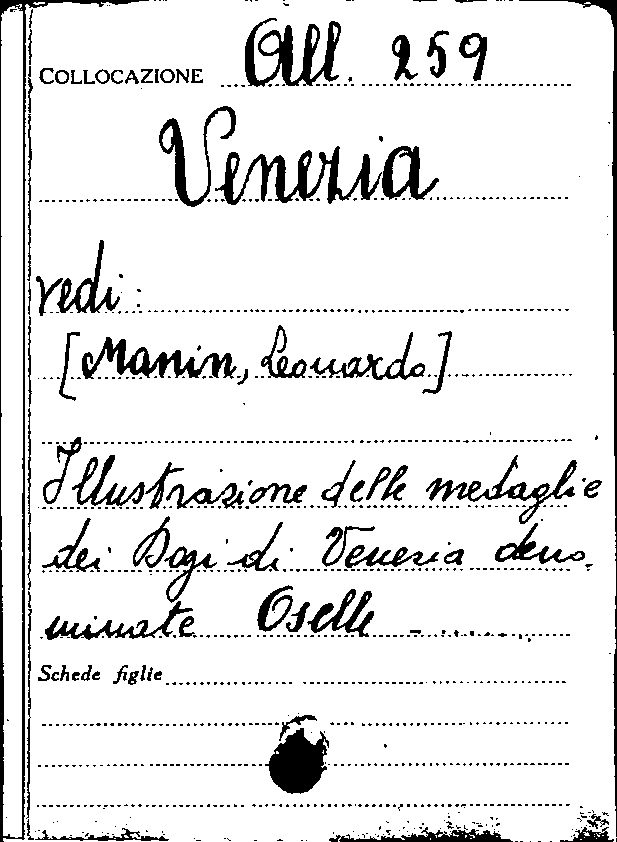 COLLOCAZIONE All. 259
Venezia
vedi:
[Manin, Leonardo]
Illustrazione delle medaglie
dei Dogi di Venezia deno-
minate Oselle - .......
Schede figlie